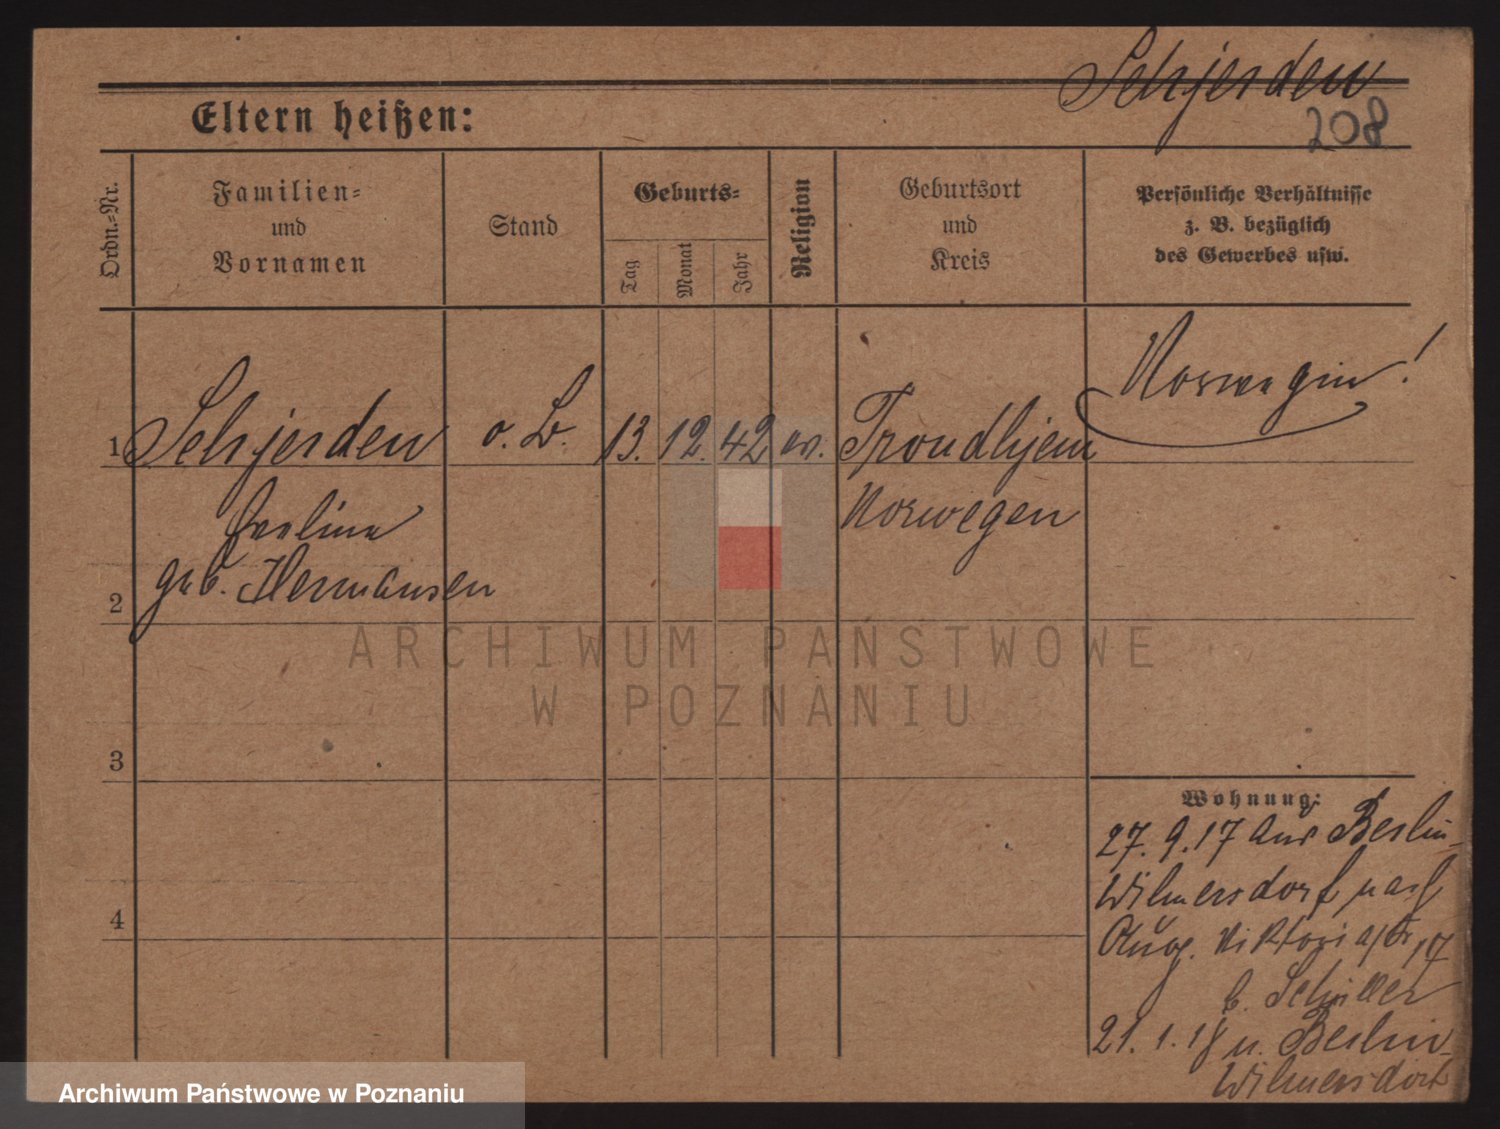 Schjerden
208
Eltern heißen:
Ordn.-Nr.
Familien-
und
Vornamen
Stand
Geburts-
Tag
Monat
Jahr
Religion
Geburtsort
und
Kreis
Persönliche Verhältnisse
z. B. bezüglich
des Gewerbes usw.
1 Schjerden o. B. 13. 12. 42 ev. Trondhjem Norwegin!
Evelina Norwegen
geb. Hermansen
2
3
4
Wohnung:
27. 9. 17 aus Berlin
Wilmersdorf nach
Aug. Viktoriastr 17
b. Schiller
21. 1. 18 n. Berlin
Wilmersdorf
ARCHIWUM PAŃSTWOWE
W POZNANIU
Archiwum Państwowe w Poznaniu